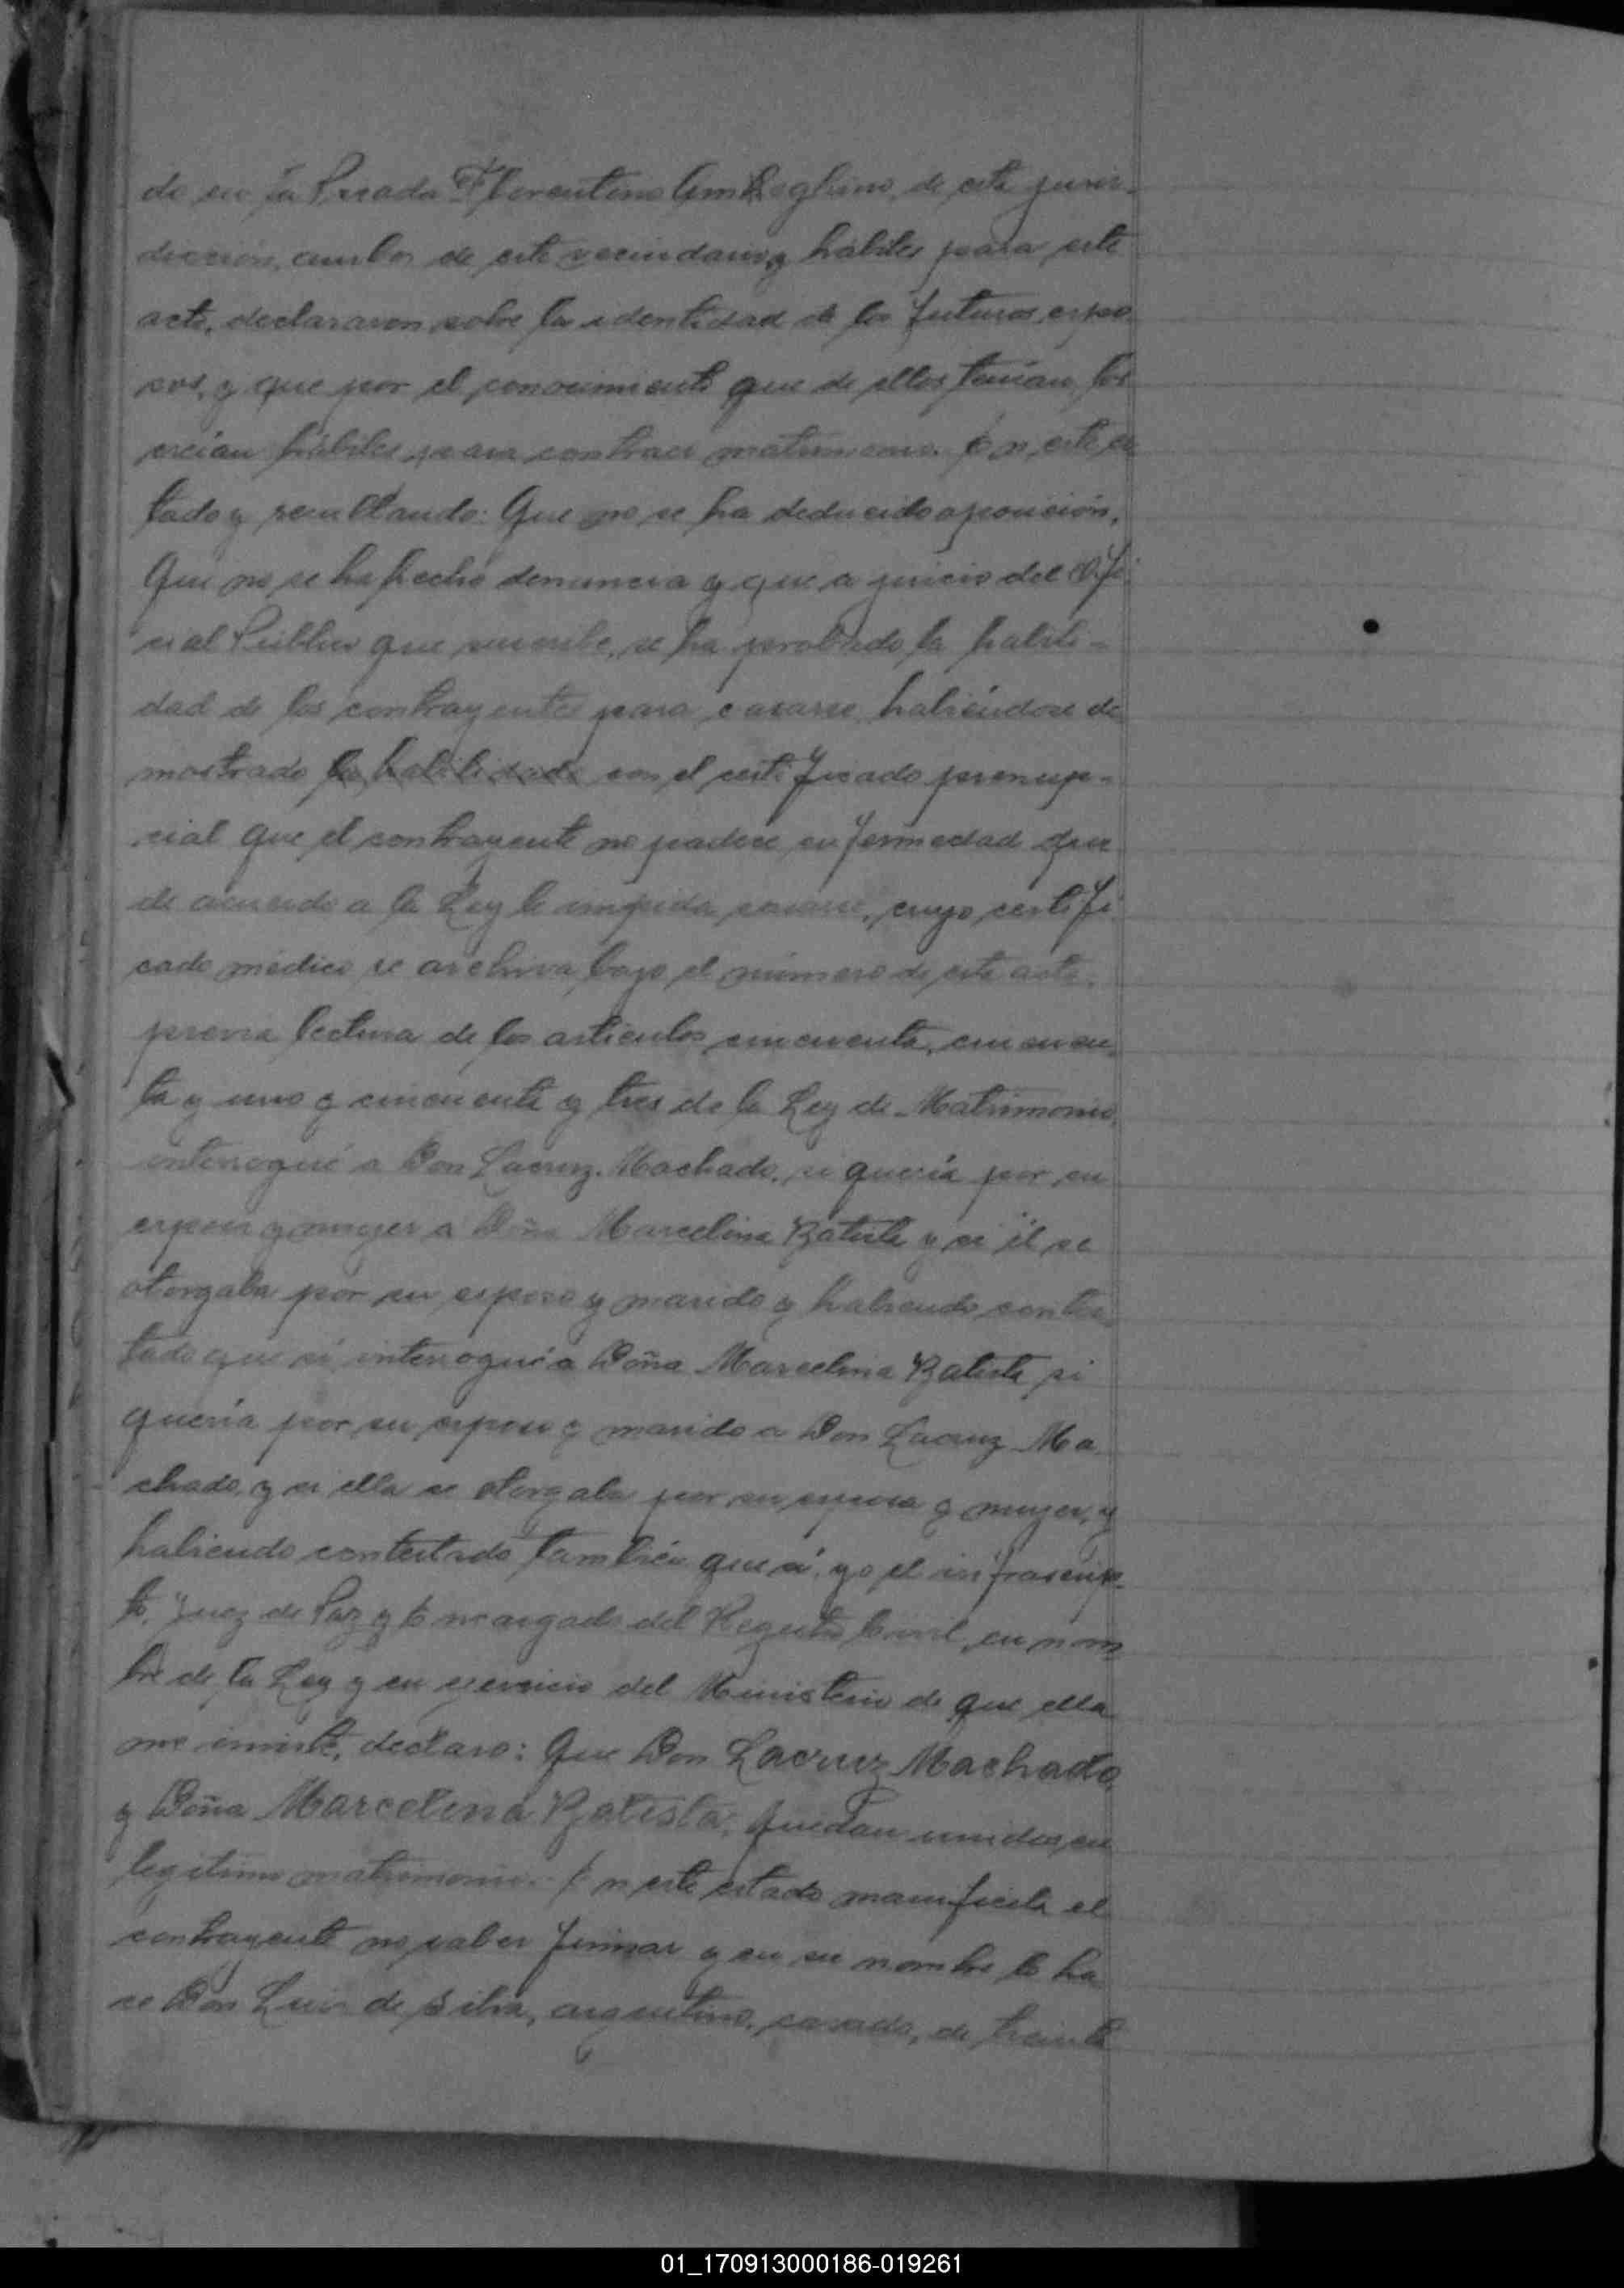 do en la Picada Florentino Ameghino, de esta juris-
dicción, ambos de este vecindario y hábiles para este
acto, declararon sobre la identidad de los futuros espo-
sos, y que por el conocimiento que de ellos tenían, los
creían hábiles para contraer matrimonio. En este es
tado y resultando: Que no se ha deducido oposición,
Que no se ha hecho denuncia y que a juicio del Ofi-
cial Público que suscribe, se ha probado la habili-
dad de los contrayentes para casarse, habiéndose de
mostrado la habilidade con el certificado prenup-
cial que el contrayente no padece enfermedad que
de acuerdo a la Ley le impida casarse, cuyo certifi
cado médico se archiva bajo el número de este acta,
previa lectura de los artículos cincuenta, cincuen-
ta y uno y cincuenta y tres de la Ley de Matrimonio,
interrogué a Don Lacruz Machado, si quería por su
esposa y mujer a Doña Marcelina Batista y si él se
otorgaba por su esposo y marido y habiendo contes-
tado que sí, interrogué a Doña Marcelina Batista si
quería por su esposo y marido a Don Lacruz Ma-
chado, y si ella se otorgaba por su esposa y mujer, y
habiendo contestado también que sí, yo el infrascrip-
to, Juez de Paz y Encargado del Registro Civil, en nom
bre de la Ley y en ejercicio del Ministerio de que ella
me inviste, declaro: Que Don Lacruz Machado,
y Doña Marcelina Batista, quedan unidos en
legítimo matrimonio.- En este estado manifiesta el
contrayente no saber firmar y en su nombre lo ha
ce Don Luis de Silva, argentino, casado, de treinta
01_170913000186-019261